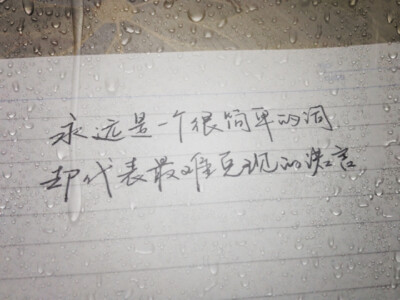 永远是一个很简单的词
却代表最难兑现的诺言